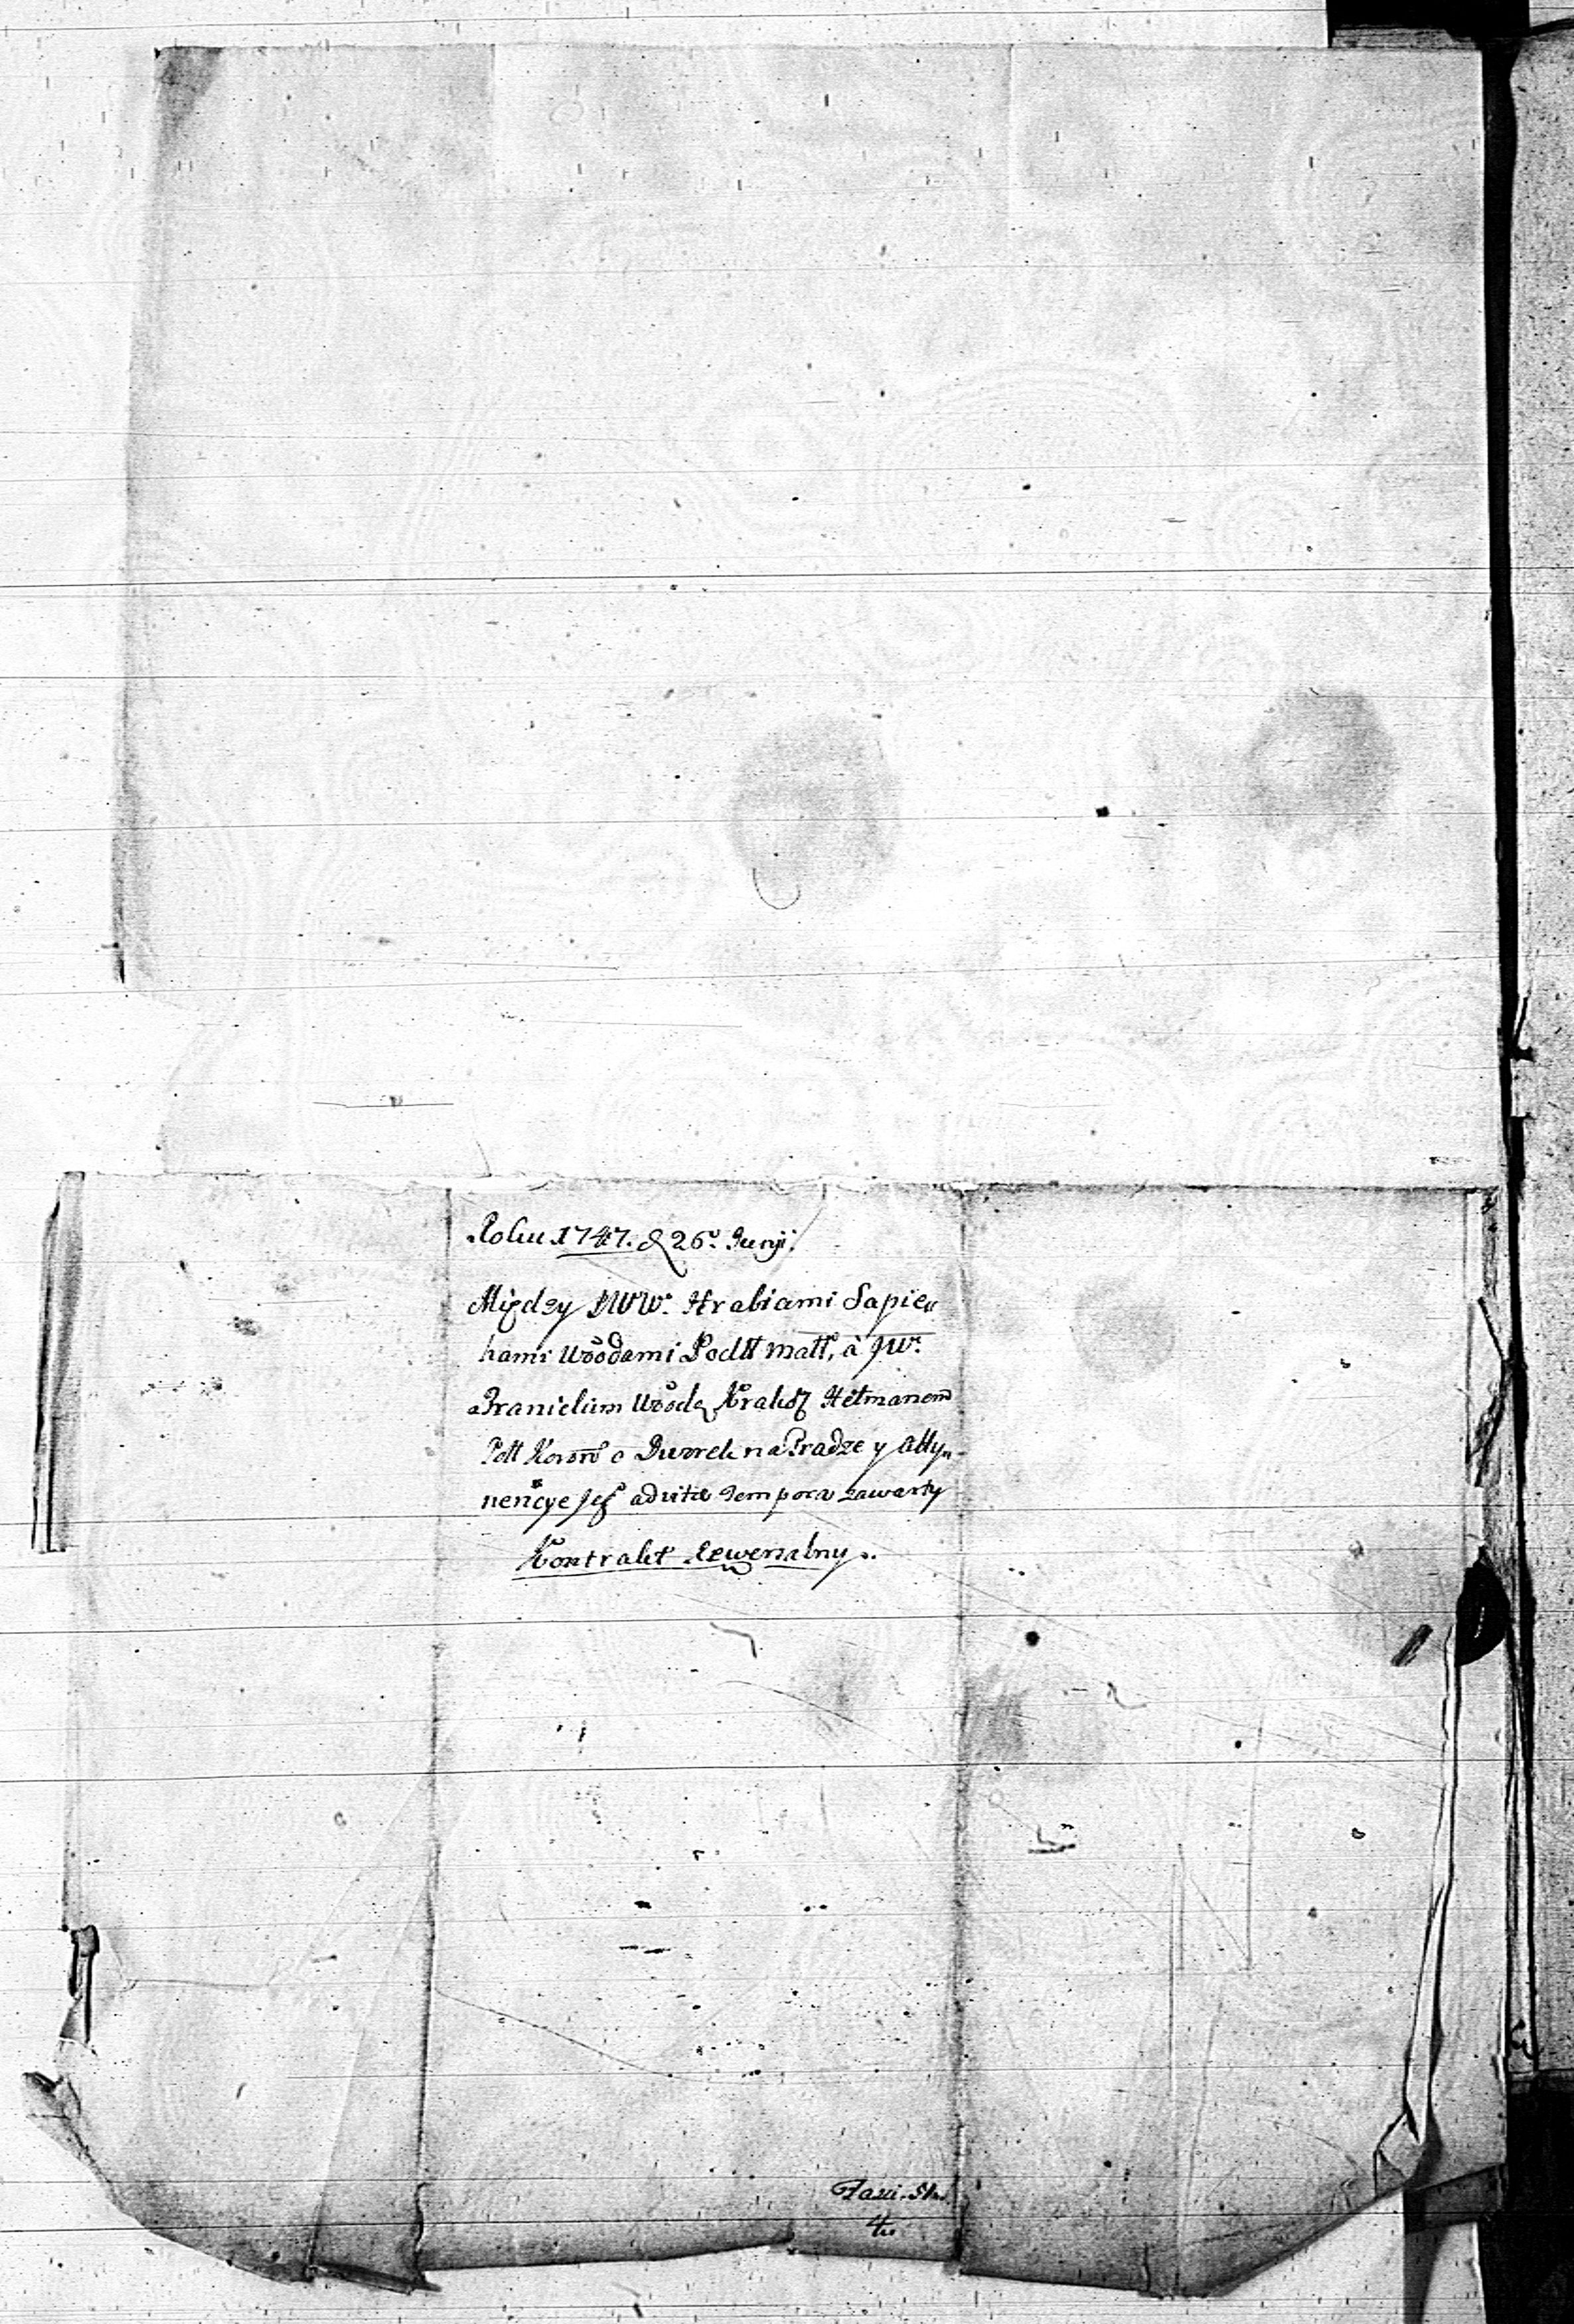 Roku 1747. d 26. Junij.
Między JWW. Hrabiami Sapie
hami Wdami a JW.
Branickim Wdą Krakow Hetmanem
Poll Koron o Dworek na Pradze y Atty
nencye Jeg ad vitæ tempora zawarty
Kontrakt Rewersalny.